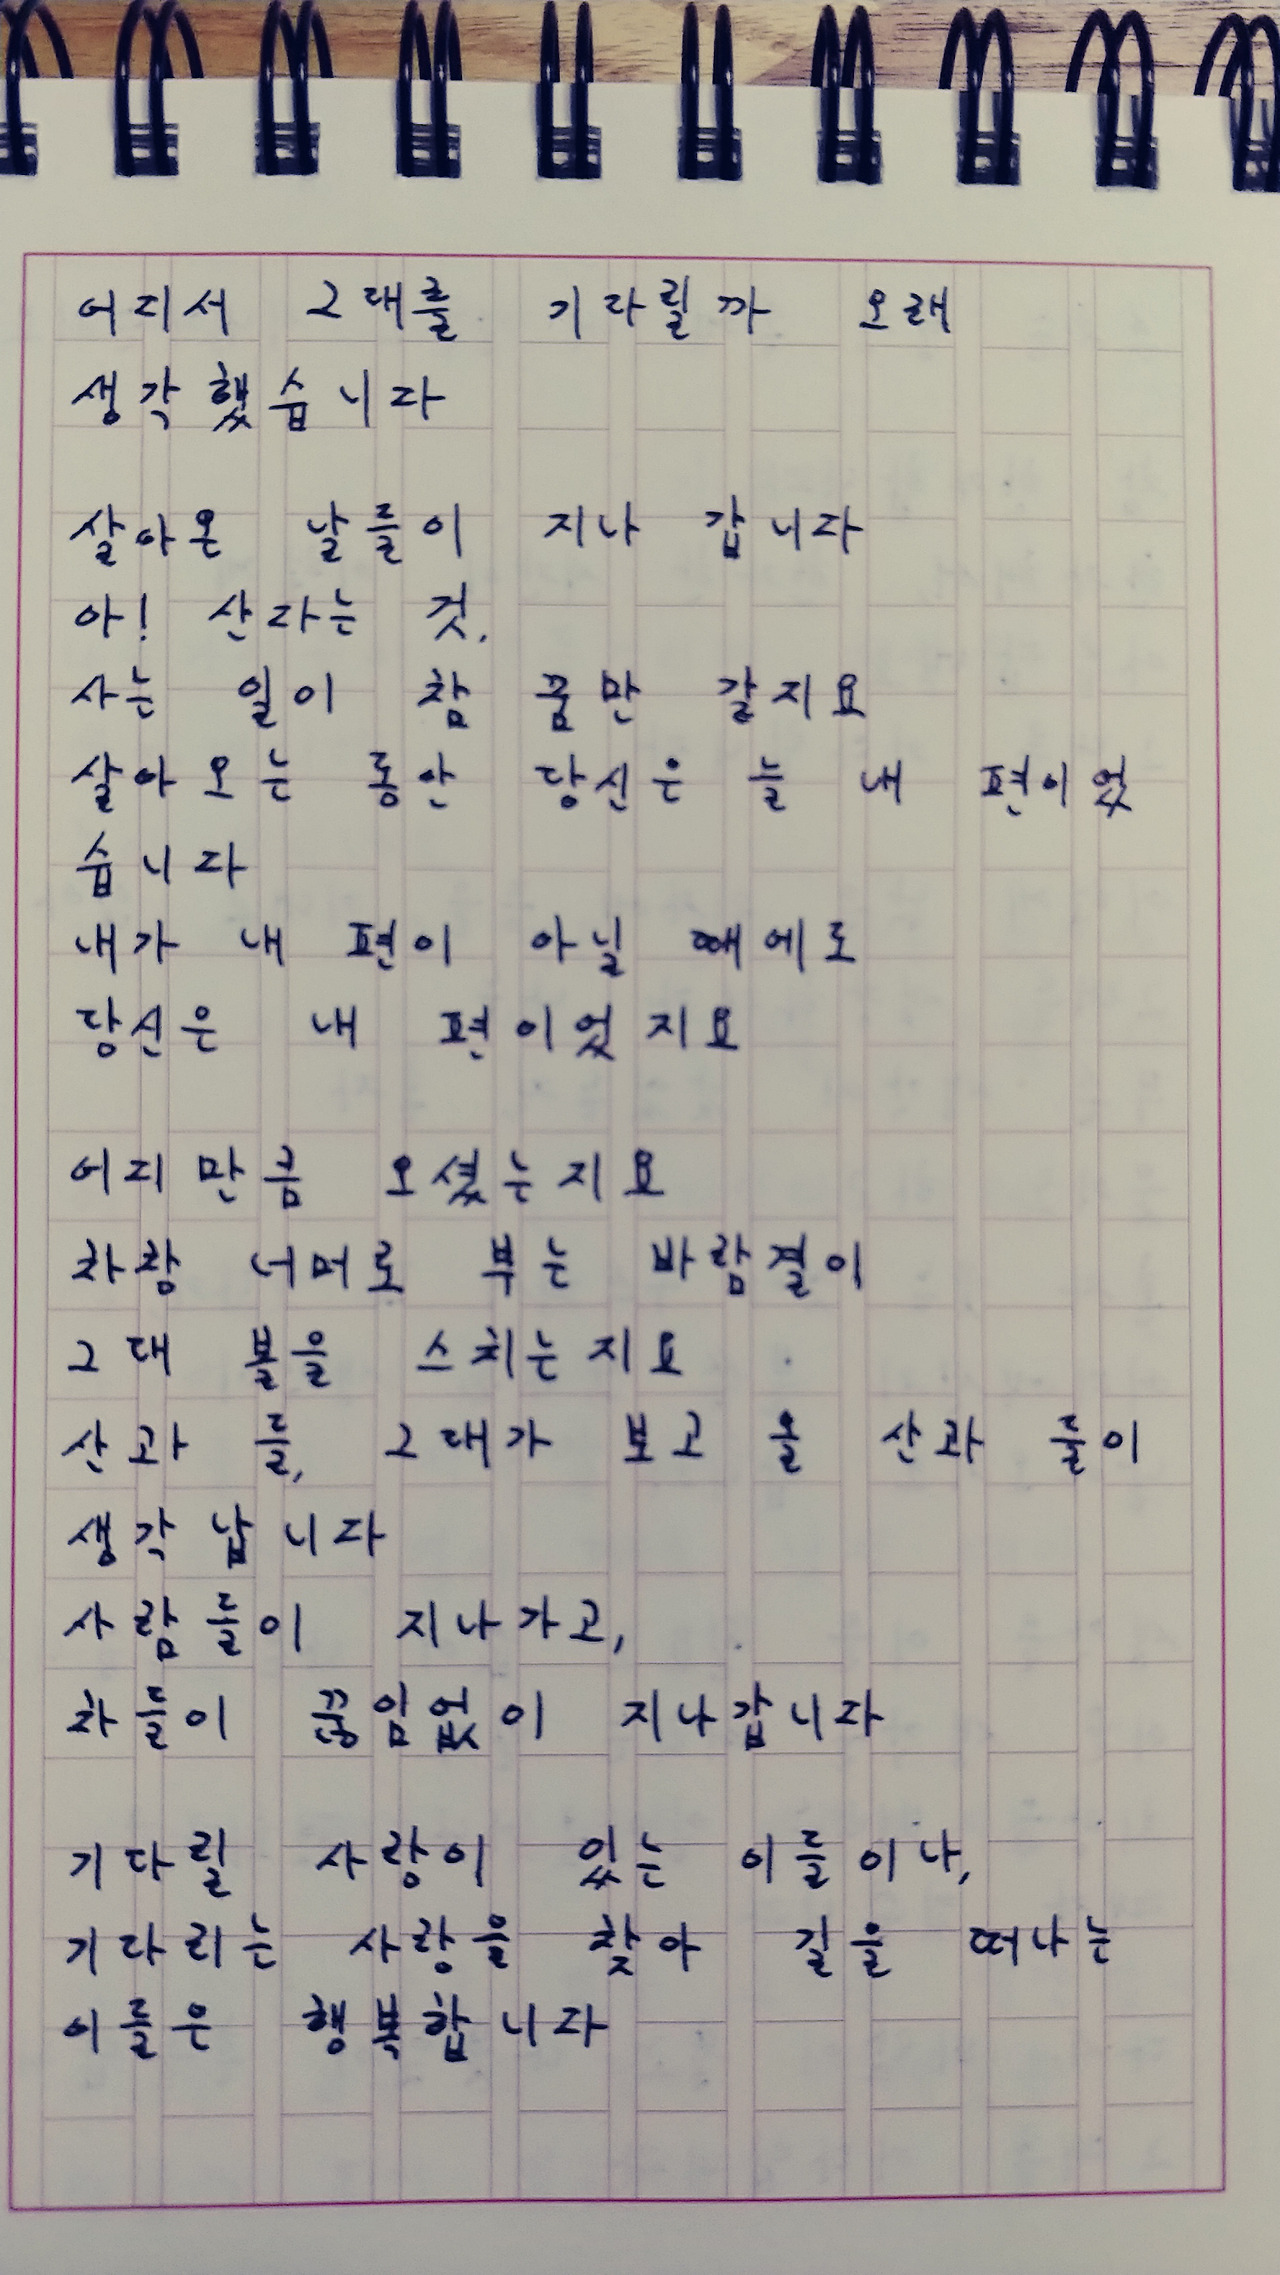 어디서 그대를 기다릴까 오래
생각했습니다
살아온 날들이 지나갑니다
아! 산다는 것,
사는 일이 참 꿈만 갈지요
살아오는 동안 당신은 늘 내 편이었
습니다
내가 내 편이 아닐 때에도
당신은 내 편이었지요
어디만큼 오셨는지요
차창 너머로 부는 바람결이
그대 볼을 스치는지요
산과 들, 그대가 보고 올 산과 들이
생각납니다
사람들이 지나가고,
차들이 끊임없이 지나갑니다
기다릴 사랑이 있는 이들이나,
기다리는 사랑을 찾아 길을 떠나는
이들은 행복합니다